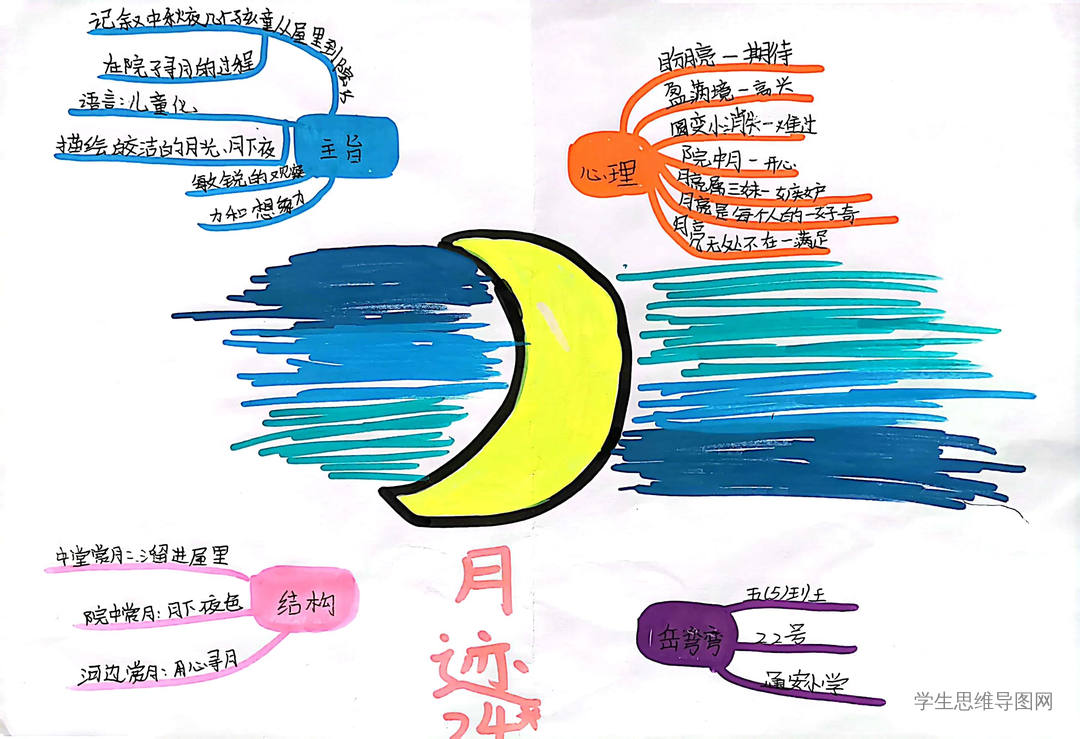 记叙中秋夜几个孩童从屋里到院子
在院子寻月的过程
语言：儿童化
描绘皎洁的月光、月下夜
敏锐的观察
力和想象力
主旨
盼月亮－期待
盈满境－高兴
圆变小消失－难过
院中月－开心
月亮属三妹－嫉妒
月亮是每个人的－好奇
月亮
无处不在－满足
心理
中堂赏月：溜进屋里
院中赏月：月下夜色
河边赏月：用心寻月
结构
月
迹
24
五(5)班
22号
通安小学
岳弯弯
学生思维导图网